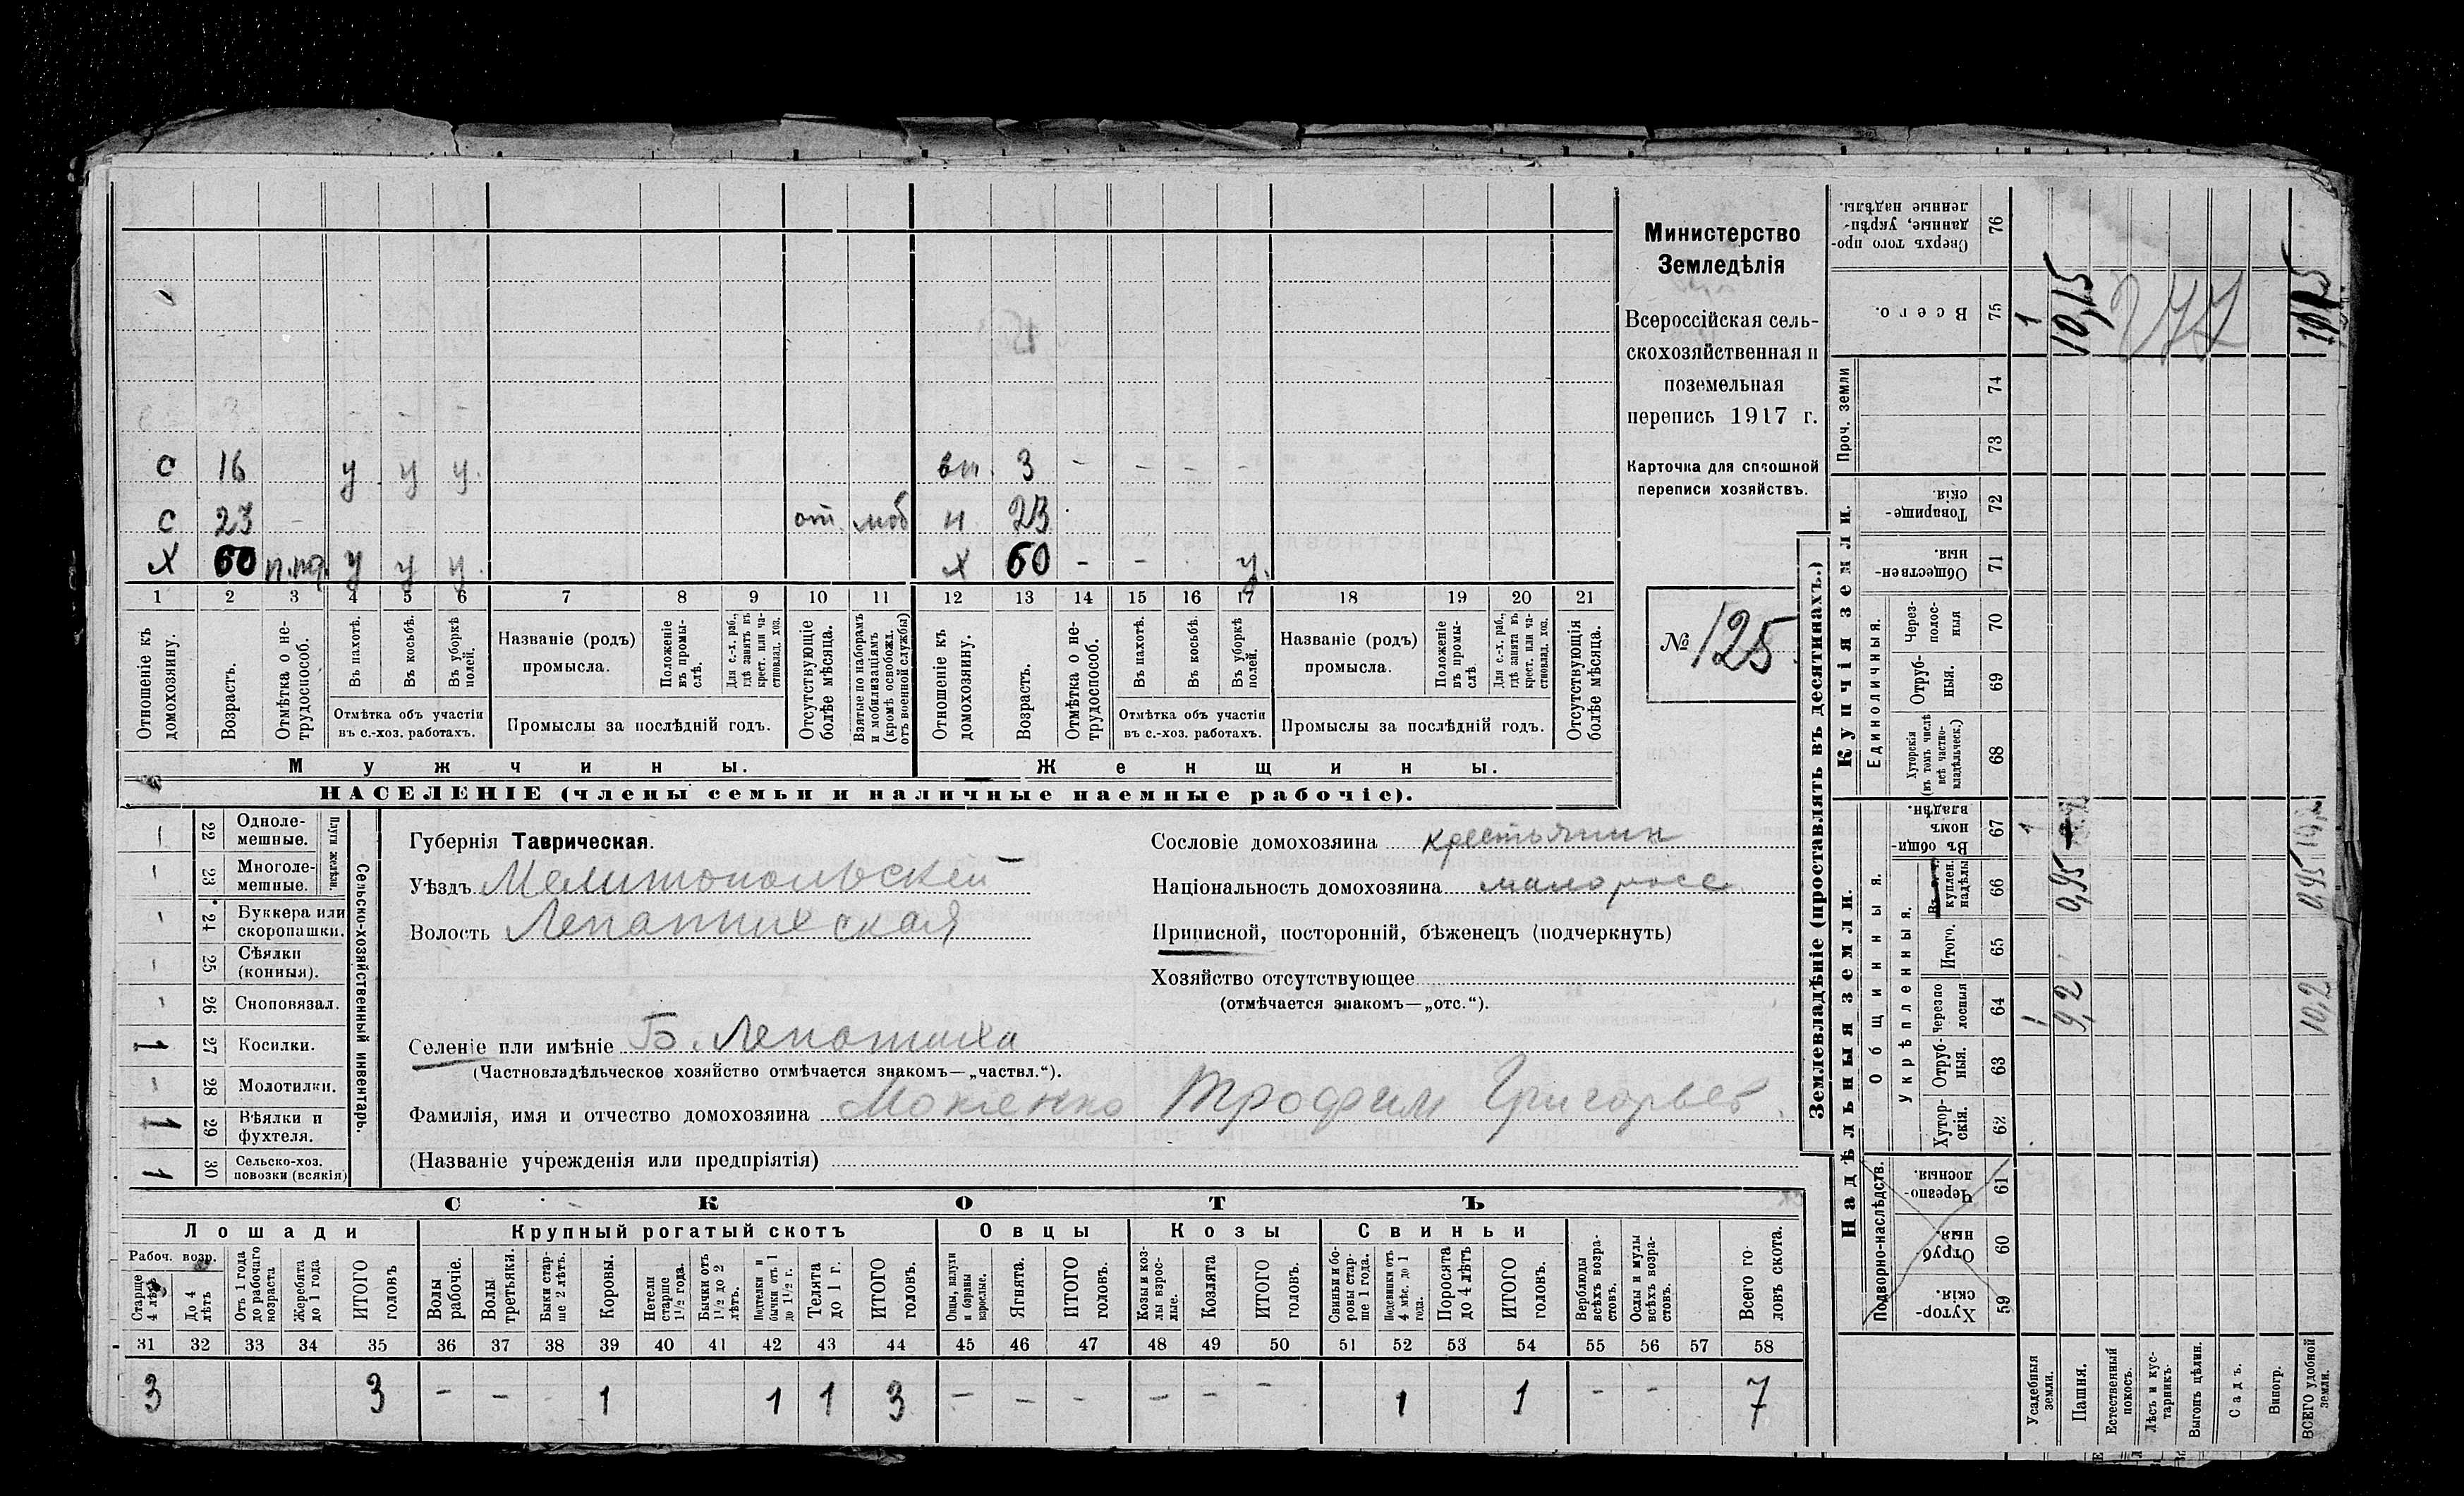 Министерство
Земледѣлія
Всероссійская сель-
скохозяйственная и
поземельная
перепись 1917 г.
Карточка для сплошной
переписи хозяйствъ.
№ 125
с 16 у у у. вн. 3 - - - -
с 23 - от. моб н 23
х 60 у у у. х 60 - - у.
1 2 3 4 5 6 7 8 9 10 11 12 13 14 15 16 17 18 19 20 21
Отношеніе къ домохозяину.
Возрастъ.
Отмѣтка о не-трудоспособ.
Въ пахотѣ.
Въ косьбѣ.
Въ уборкѣ полей.
Отмѣтка объ участіи
въ с.-хоз. работахъ.
Названіе (родъ)
промысла.
Положеніе въ промы-слѣ.
Для с.-х. раб., гдѣ занятъ въ крест. или ча-стновлад. хоз.
Промыслы за послѣдній годъ.
Отсутствующіе болѣе мѣсяца.
Взятые по наборамъ и мобилизаціямъ (кромѣ освобожд. отъ военной службы)
Отношеніе къ домохозяину.
Возрастъ.
Отмѣтка о не-трудоспособ.
Въ пахотѣ.
Въ косьбѣ.
Въ уборкѣ полей.
Отмѣтка объ участіи
въ с.-хоз. работахъ.
Названіе (родъ)
промысла.
Положеніе въ промы-слѣ
Для с.-х. раб., гдѣ занята въ крест. или ча-стновлад. хоз.
Промыслы за послѣдній годъ.
Отсутствующія болѣе мѣсяца.
Мужчины. Женщины.
НАСЕЛЕНІЕ (члены семьи и наличные наемные рабочіе).
Сельско-хозяйственный инвентарь.
Плуги желѣзн.
— 22 Одноле-мешные.
— 23 Многоле-мешные.
— 24 Буккера или скоропашки.
— 25 Сѣялки (конныя).
— 26 Сноповязал.
1 27 Косилки.
— 28 Молотилки.
1 29 Вѣялки и фухтеля.
1 30 Сельско-хоз. повозки (всякія)
Губернія Таврическая.
Уѣздъ Мелитопольскій
Волость Лепатихская
Селеніе или имѣніе Б. Лепатиха
(Частновладѣльческое хозяйство отмѣчается знакомъ—„частвл.“).
Фамилія, имя и отчество домохозяина Трофим Григорьев.
(Названіе учрежденія или предпріятія)
Сословіе домохозяина крестьянин
Національность домохозяина малоросс
Приписной, посторонній, бѣженецъ (подчеркнуть)
Хозяйство отсутствующее
(отмѣчается знакомъ—„отс.“).
СКОТЪ
Лошади Крупный рогатый скотъ Овцы Козы Свиньи
Рабоч. возр.
Старше 4 лѣтъ
До 4 лѣтъ
Отъ 1 года до рабочаго возраста
Жеребята до 1 года
ИТОГО головъ
Волы рабочіе.
Волы третьяки.
Быки стар-ше 2 лѣтъ.
Коровы.
Нетели старше 1½ года.
Бычки отъ 1½ до 2 лѣтъ.
Подтелки и бычки отъ 1 до 1½ г.
Телята до 1 г.
ИТОГО головъ.
Овцы, валухи и бараны взрослые.
Ягнята.
ИТОГО головъ.
Козы и коз-лы взрос-лые.
Козлята
ИТОГО головъ.
Свиньи и бо-ровы стар-ше 1 года.
Подсвинки отъ 4 мѣс. до 1 года.
Поросята до 4 лѣтъ
ИТОГО головъ.
Верблюды всѣхъ возра-стовъ.
Ослы и мулы всѣхъ возра-стовъ.
Всего го-ловъ скота.
31 32 33 34 35 36 37 38 39 40 41 42 43 44 45 46 47 48 49 50 51 52 53 54 55 56 57 58
3 3 - - - 1 1 1 3 - - - - - - 1 1 - - 7
Землевладѣніе (проставлять въ десятинахъ.)
Надѣльныя земли. Купчія земли. Проч. земли
Подворно-наслѣдств.
Общинныя.
Укрѣпленныя.
Единоличныя.
Хутор-скія. 59
Отруб-ныя. 60
Черезпо-лосныя. 61
Хутор-скія. 62
Отруб-ныя. 63
Черезпо-лосныя 64
Итого. 65
куплен. надѣлы 66
Въ общин-номъ владѣн. 67
Хуторскія (въ томъ числѣ всѣ частно-владѣльческ.) 68
Отруб-ныя. 69
Через-полос-ныя 70
Обществен-ныя. 71
Товарище-скія. 72
73
74
Всего. 75
Сверхъ того про-данные, укрѣп-ленные надѣлы. 76
Усадебныя земли. 1 1 1
Пашня. 9,2 0,95 10,15
Естественный покосъ.
Лѣсъ и кус-тарникъ.
Выгонъ цѣлин.
Садъ.
Виногр.
ВСЕГО удобной земли. 10,2 0,95
277